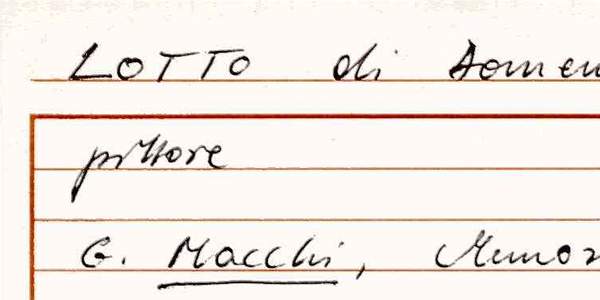 LOTTO di Domen
pittore
G. Macchi, Memor